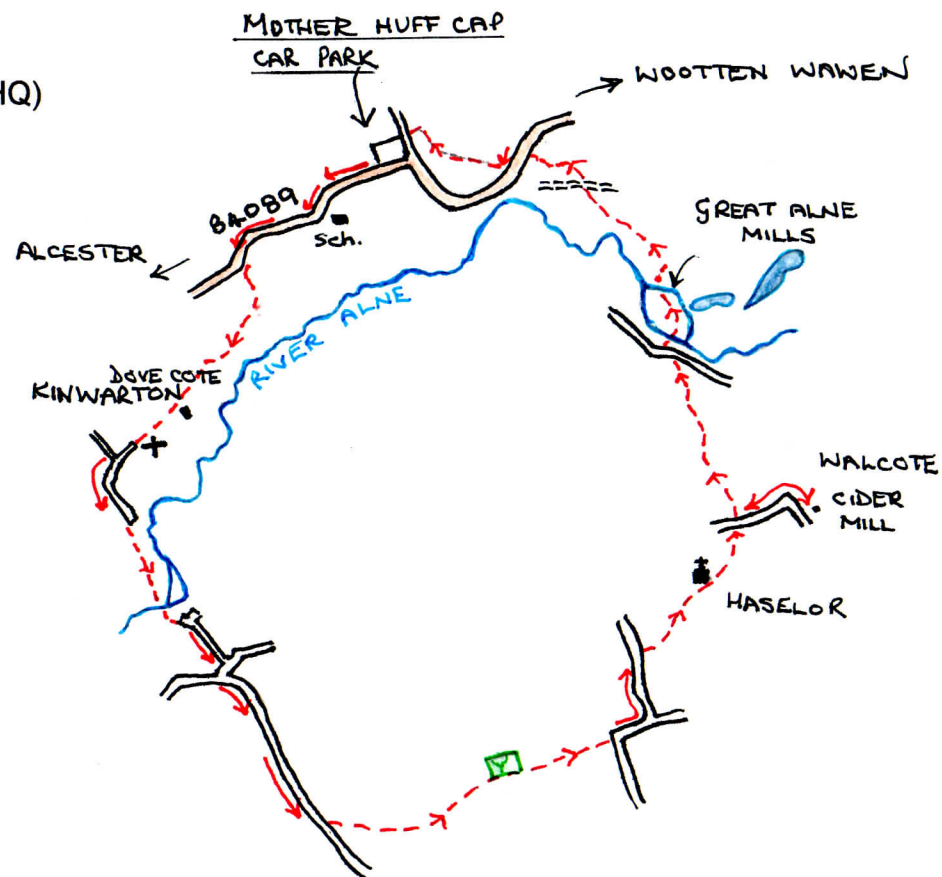 MOTHER HUFF CAP
CAR PARK
HQ)
WOOTTEN WAWEN
B4089
Sch.
ALCESTER
GREAT ALNE
MILLS
RIVER ALNE
DOVE COTE
KINWARTON
WALCOTE
CIDER
MILL
HASELOR